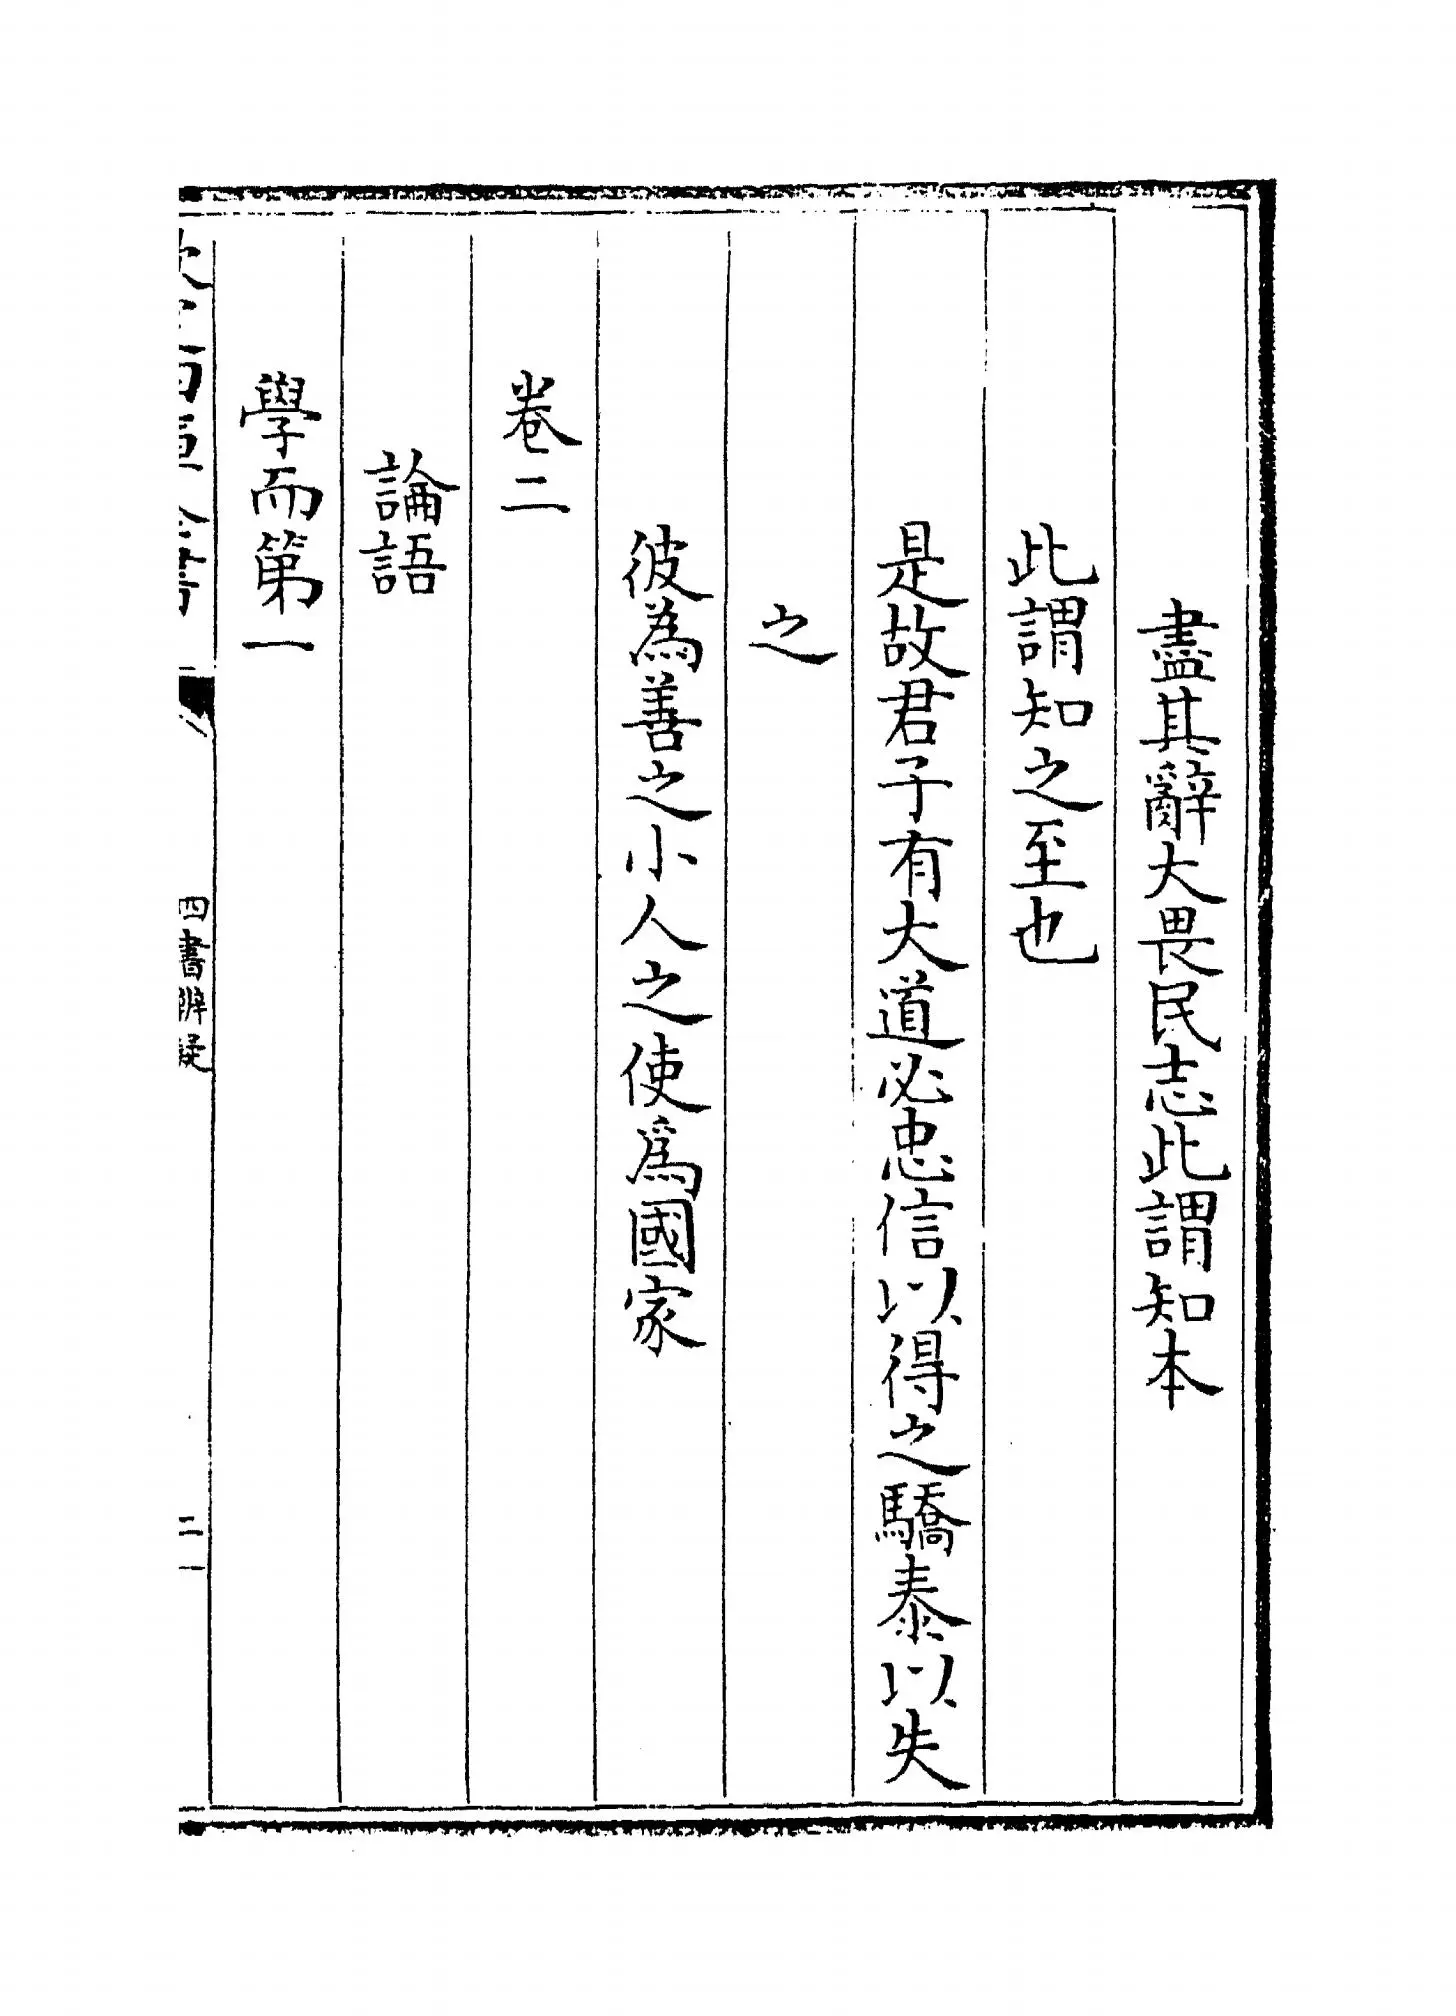 盡其辭大畏民志此謂知本
此謂知之至也
是故君子有大道必忠信以得之驕泰以失
之
彼為善之小人之使爲國家
卷二
論語
學而第一
四書辨疑
二